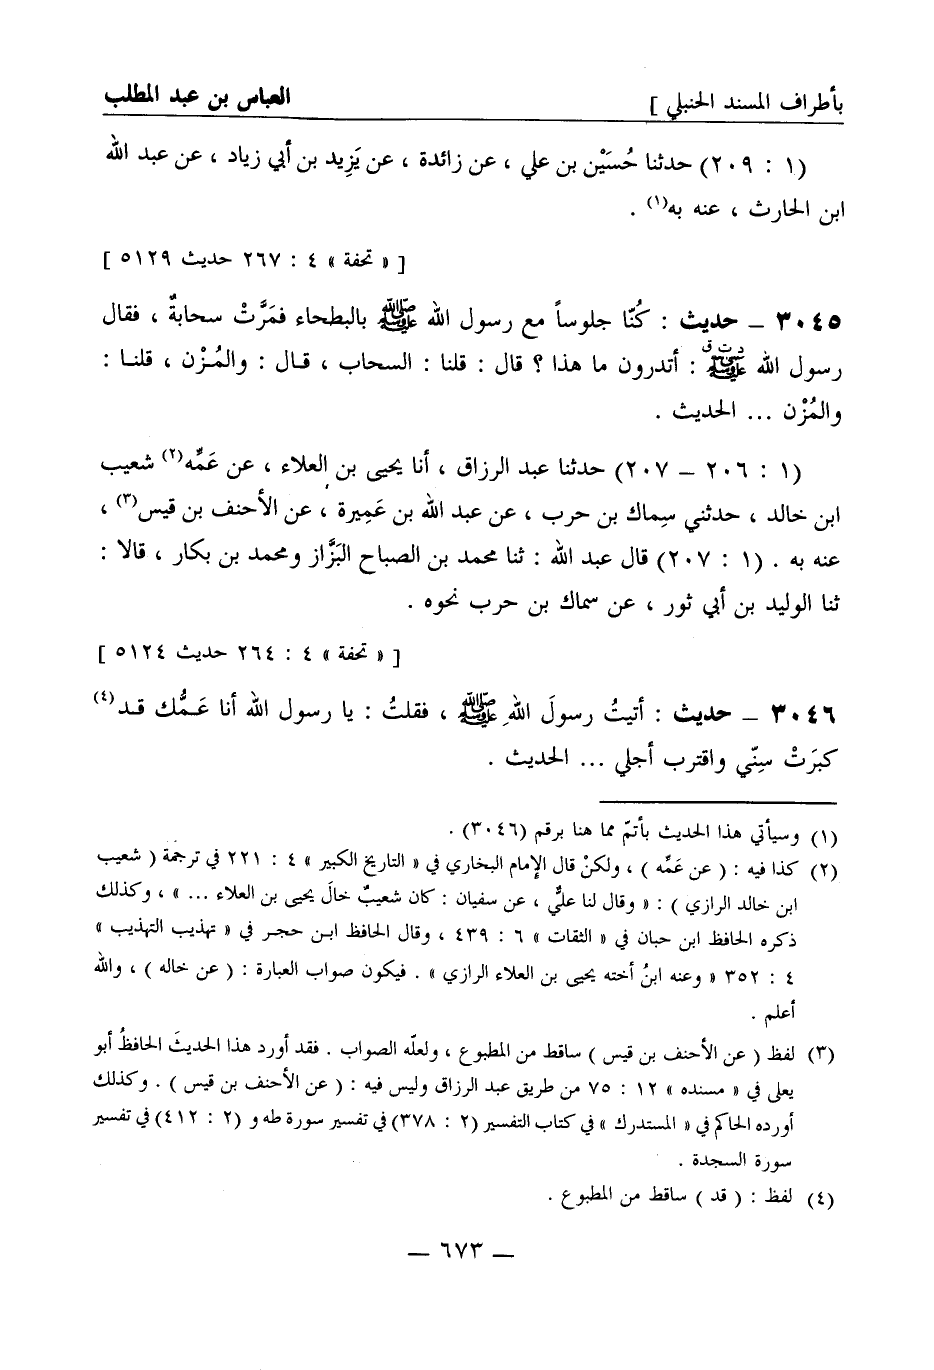 بأطراف المسند الحنبلي ] العباس بن عبد المطلب
(١ : ٢٠٩) حدثنا حُسَيْن بن علي ، عن زائدة ، عن يَزِيد بن أبي زياد ، عن عبد الله
ابن الحارث ، عنه به(١) .
[ « تحفة » ٤ : ٢٦٧ حديث ٥١٢٩ ]
٣٠٤٥ – حديث : كُنّا جلوساً مع رسول الله ﷺ بالبطحاء فمَرَّتْ سحابةٌ ، فقال
د ت ق
رسول الله ﷺ : أتدرون ما هذا ؟ قال : قلنا : السحاب ، قـال : والمُزْن ، قلنـا :
والمُزْن ... الحديث .
(١ : ٢٠٦ – ٢٠٧) حدثنا عبد الرزاق ، أنا يحيى بن العلاء ، عن عَمِّه(٢) شعيب
ابن خالد ، حدثني سِماك بن حرب ، عن عبد الله بن عَمِيرة ، عن الأحنف بن قيس(٣) ،
عنه به . (١ : ٢٠٧) قال عبد الله : ثنا محمد بن الصباح البَزَّاز ومحمد بن بكار ، قالا :
ثنا الوليد بن أبي ثور ، عن سماك بن حرب نحوه .
[ « تحفة » ٤ : ٢٦٤ حديث ٥١٢٤ ]
٣٠٤٦ – حديث : أتيتُ رسولَ اللهِ ﷺ ، فقلتُ : يا رسول الله أنا عَـمُّك قـد(٤)
كبرَتْ سِنّي واقترب أجلي ... الحديث .
(١) وسيأتي هذا الحديث بأتمّ مما هنا برقم (٣٠٤٦) .
(٢) كذا فيه : ( عن عَمِّه ) ، ولكنْ قال الإمام البخاري في « التاريخ الكبير » ٤ : ٢٢١ في ترجمة ( شعيب
ابن خالد الرازي ) : « وقال لنا عليٌّ ، عن سفيان : كان شعيبٌ خالَ يحيى بن العلاء ... » ، وكذلك
ذكره الحافظ ابن حبان في « الثقات » ٦ : ٤٣٩ ، وقال الحافظ ابـن حجـر في « تهذيب التهذيب »
٤ : ٣٥٢ « وعنه ابنُ أخته يحيى بن العلاء الرازي » . فيكون صواب العبارة : ( عن خاله ) ، والله
أعلم .
(٣) لفظ ( عن الأحنف بن قيس ) ساقط من المطبوع ، ولعلّه الصواب . فقد أورد هذا الحديثَ الحافظُ أبو
يعلى في « مسنده » ١٢ : ٧٥ من طريق عبد الرزاق وليس فيه : ( عن الأحنف بن قيس ) . وكذلك
أورده الحاكم في « المستدرك » في كتاب التفسير (٢ : ٣٧٨) في تفسير سورة طه و (٢ : ٤١٢) في تفسير
سورة السجدة .
(٤) لفظ : ( قد ) ساقط من المطبوع .
– ٦٧٣ –